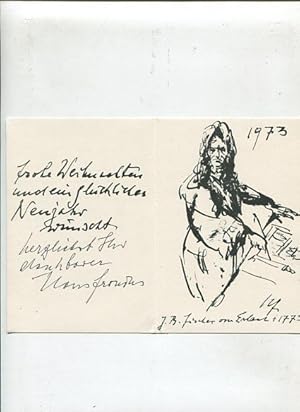 frohe Weihnachten
und ein glückliches
Neujahr
wünscht
herzlichst Ihr
dankbarer
Hans Fronius
1973
J. B. Fischer von Erlach 1773